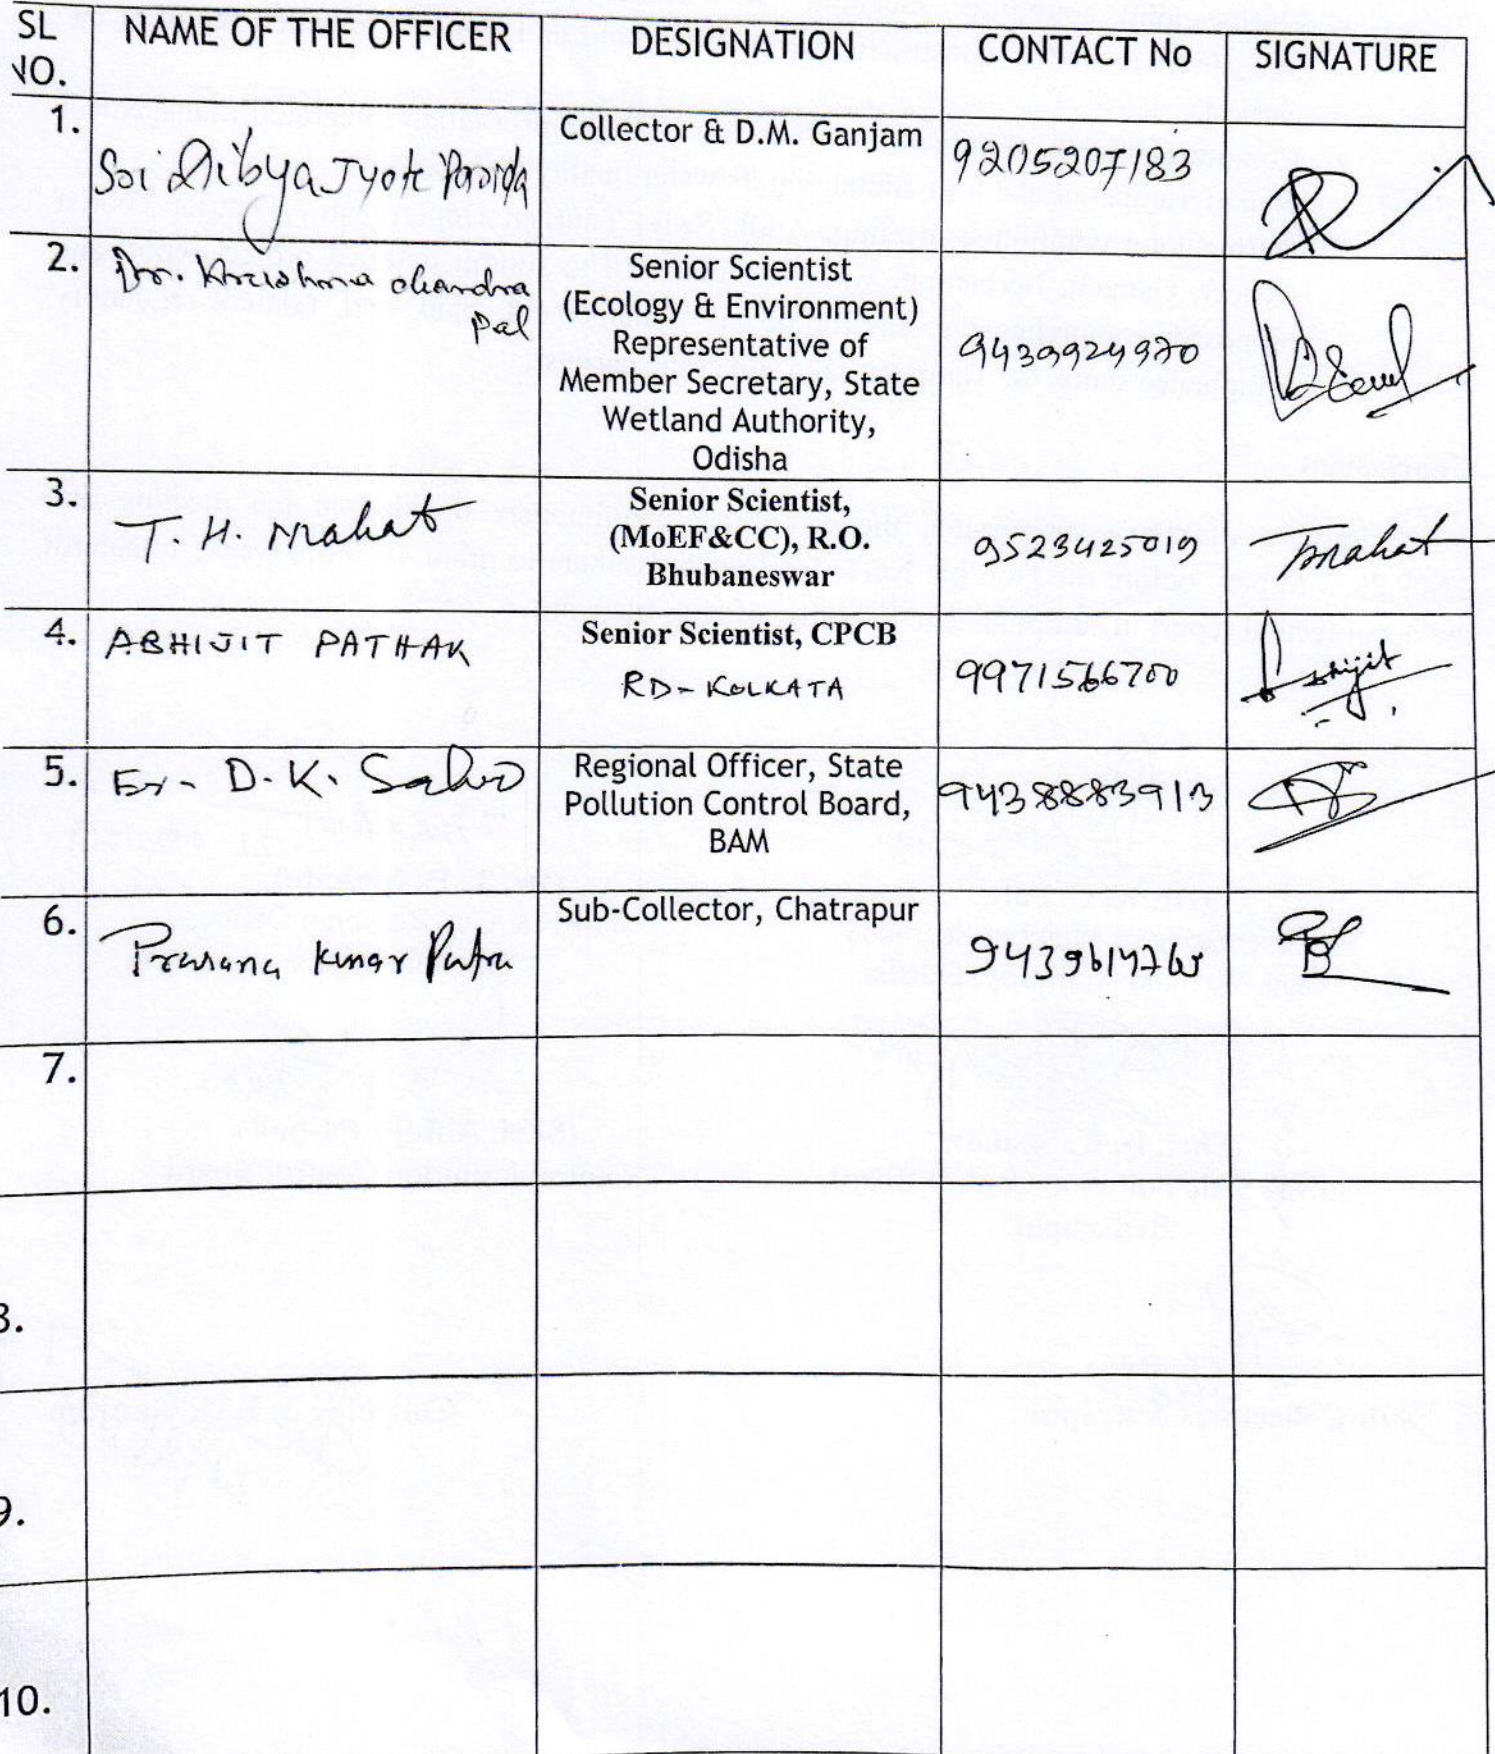 SL NO. NAME OF THE OFFICER DESIGNATION CONTACT No SIGNATURE
1. Sri Dibya Jyoti Parida Collector & D.M. Ganjam 9205207183
2. Dr. Krishna chandra
pal
Senior Scientist
(Ecology & Environment)
Representative of
Member Secretary, State
Wetland Authority,
Odisha
9439924970
3. T. H. Mahat
Senior Scientist,
(MoEF&CC), R.O.
Bhubaneswar
9523425019 Tmahat
4. ABHIJIT PATHAK
Senior Scientist, CPCB
RD - KOLKATA
9971566700 Abhijit
5. Er. D. K. Sahoo
Regional Officer, State
Pollution Control Board,
BAM
9438883913
6. Prasana Kumar Patra Sub-Collector, Chatrapur
7.
8.
9.
10.